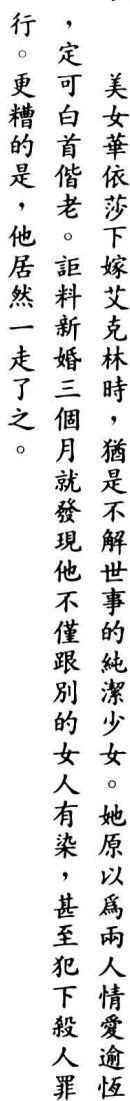 美女華依莎下嫁艾克林時，猶是不解世事的純潔少女。她原以爲兩人情愛逾恆
，定可白首偕老。詎料新婚三個月就發現他不僅跟別的女人有染，甚至犯下殺人罪
行。更糟的是，他居然一走了之。